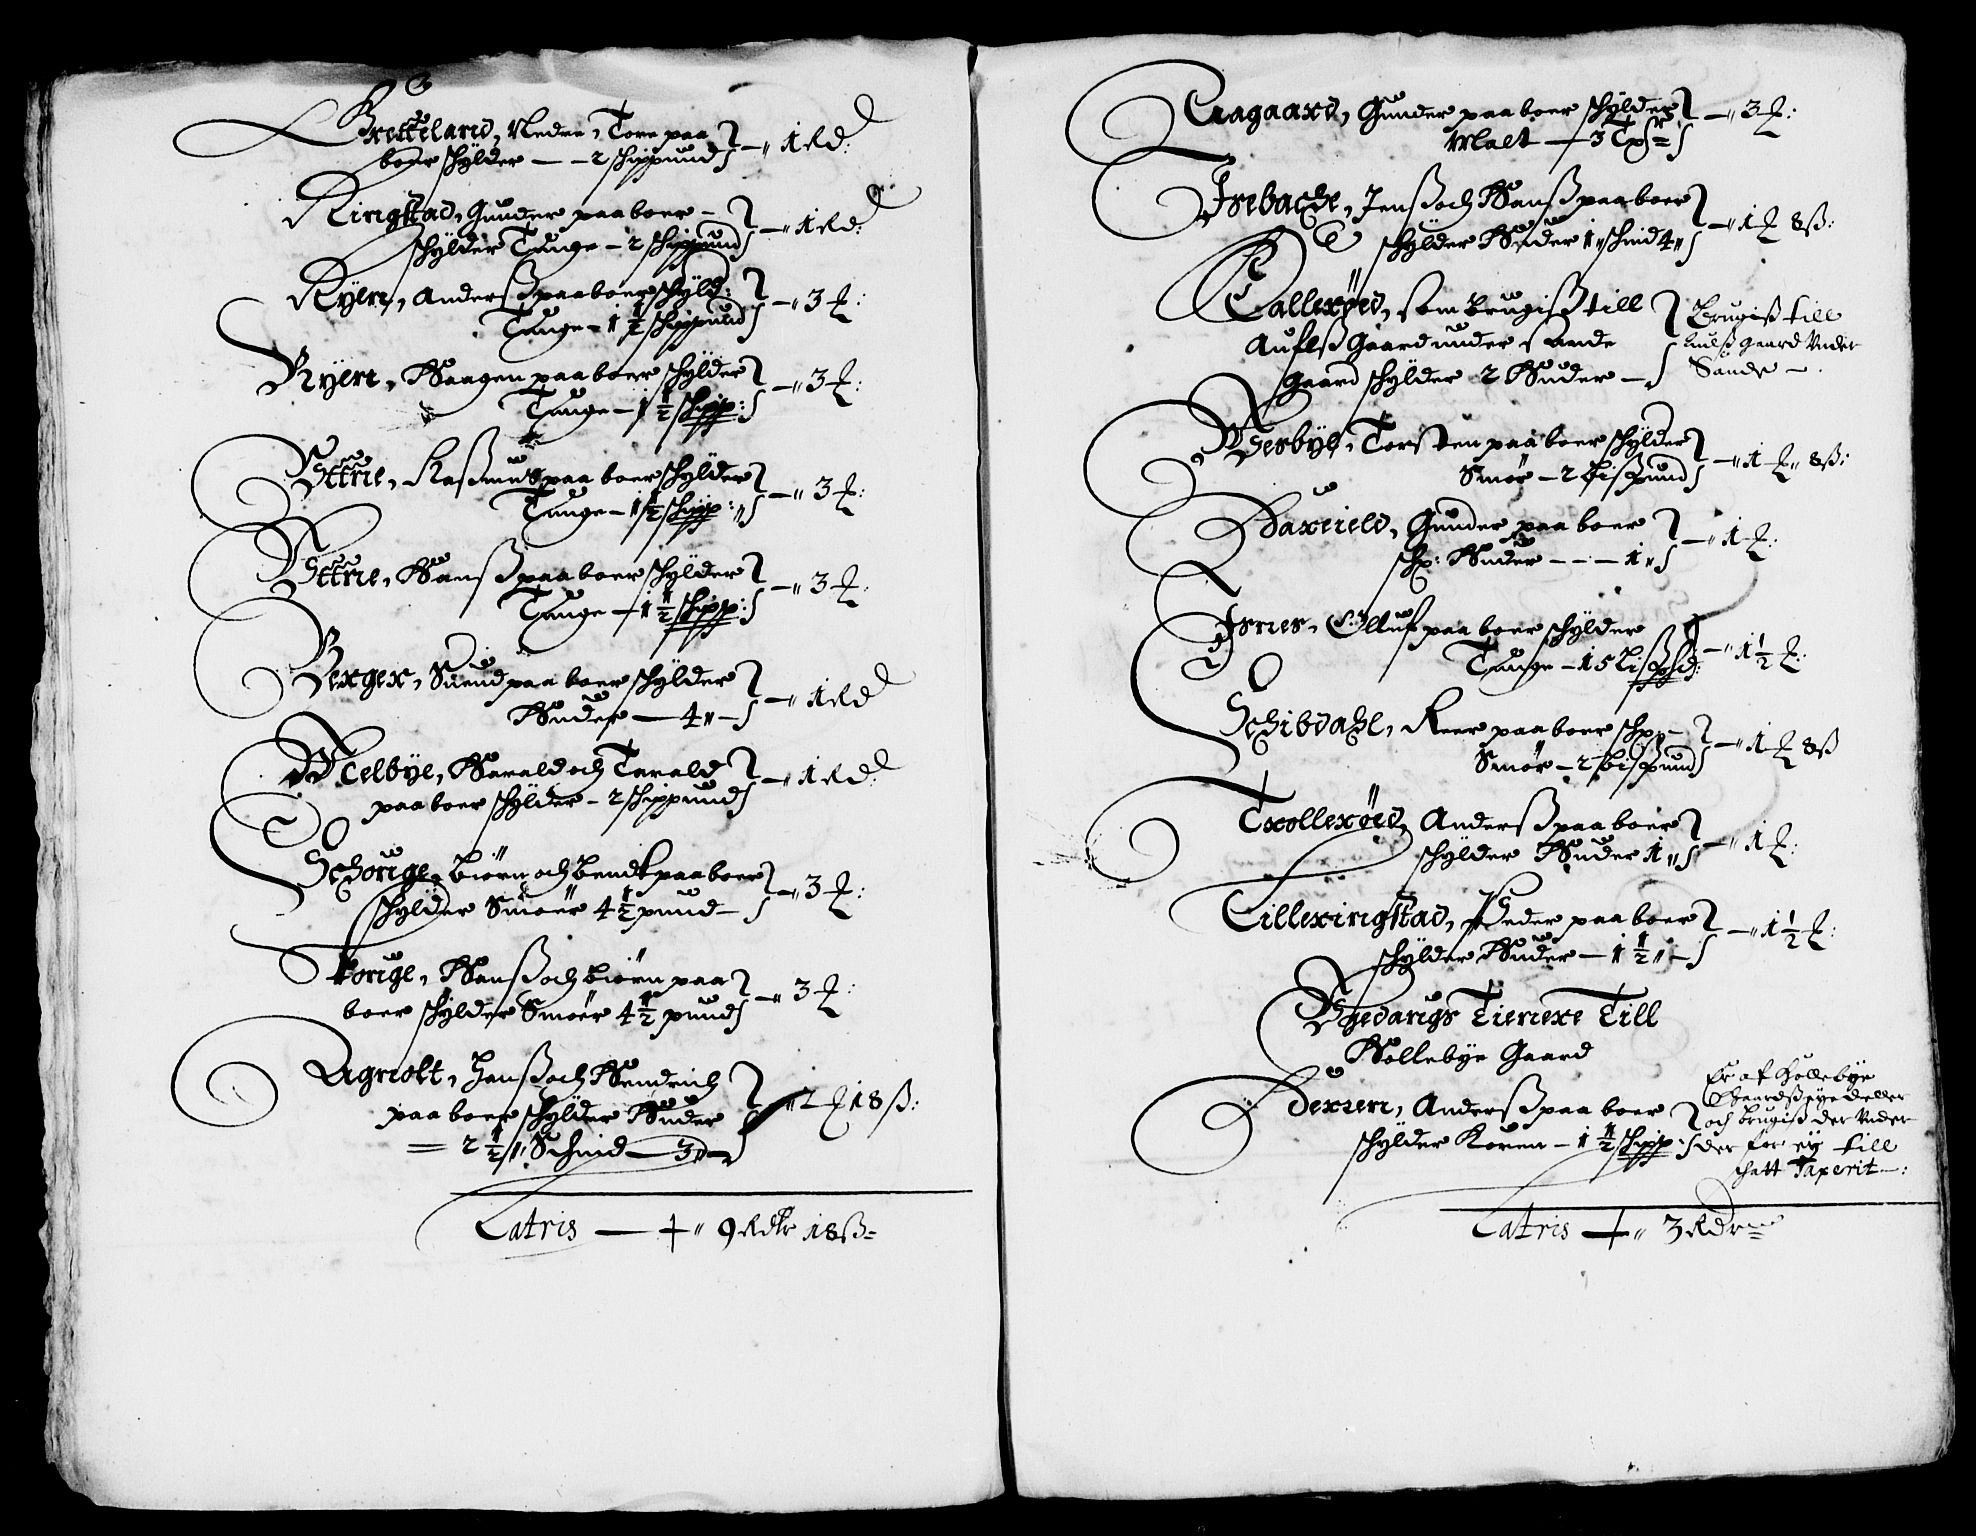 Gretteland, Nedre, Tore paa
boer schylder — — 2 schippund — 1 Rd:
Ringstad, Gunder paa boer —
schylder Tunge — 2 schippund — 1 Rd:
Ryen, Anderß paa boer schyld:
Tunge — 1 1/2 schippund — 3 ℔:
Ryen, Haagen paa boer schylder
Tunge — 1 1/2 schipp: — 3 ℔:
Rasmus paa boer schylder
Tunge — 1 1/2 schipp: — 3 ℔:
Hanß paa boer schylder
Tunge — 1 1/2 schipp: — 3 ℔:
Berger, Suend paa boer schylder
Huder — 4 — 1 Rd
Melbye, Harald och Tarald
paa boer schylder — 2 schippund — 1 Rd:
Biörn och Bendt paa boer
schylder Smöer 4 1/2 pund — 3 ℔:
Hanß och Biörn paa
boer schylder Smöer 4 1/2 pund — 3 ℔:
Hanß och Hendrich
paa boer schylder Huder
2 1/2 Schind — 3 — 2 ℔ 18 ß:
Latris — 9 Rdlr 18 ß
Aagaard, Gunder paa boer schylder
Malt — 3 — 3 ℔:
Isebacke, Jenß och Hanß paa boer
schylder Huder 1 schind 4 — 1 ℔ 8 ß:
Kalleröed, som brugiß till
Aufls Gaard under Sande
Gaard schylder 2 Huder —
Brugiß till
Aulß gaard Vnder
Sande —
Torsten paa boer schylder
Smör — 2 bispund — 1 ℔ 8 ß:
Gunder paa boer
sch: Huder — — — 1 — 1 ℔:
Isnes, Olluf paa boer schylder
Tunge — 15 Lißpd: — 1 1/2 ℔:
Schibdahl, Reer paa boer sch:
Smör — 2 bispund — 1 ℔ 8 ß
Trolleröed, Anderß paa boer
schylder Huder 1 — 1 ℔:
Lilleringstad, Peder paa boer
schylder Huder — 1 1/2 — 1 1/2 ℔:
Tienere Till
Hollebye Gaard
Anderß paa boer
schylder Koren — 1 1/2 schipp:
Er af Hollebye
Gaardß eyedeller
och brugiß der Vnder
der for ey till
schatt Taxerit —:
Latris — 3 Rdr